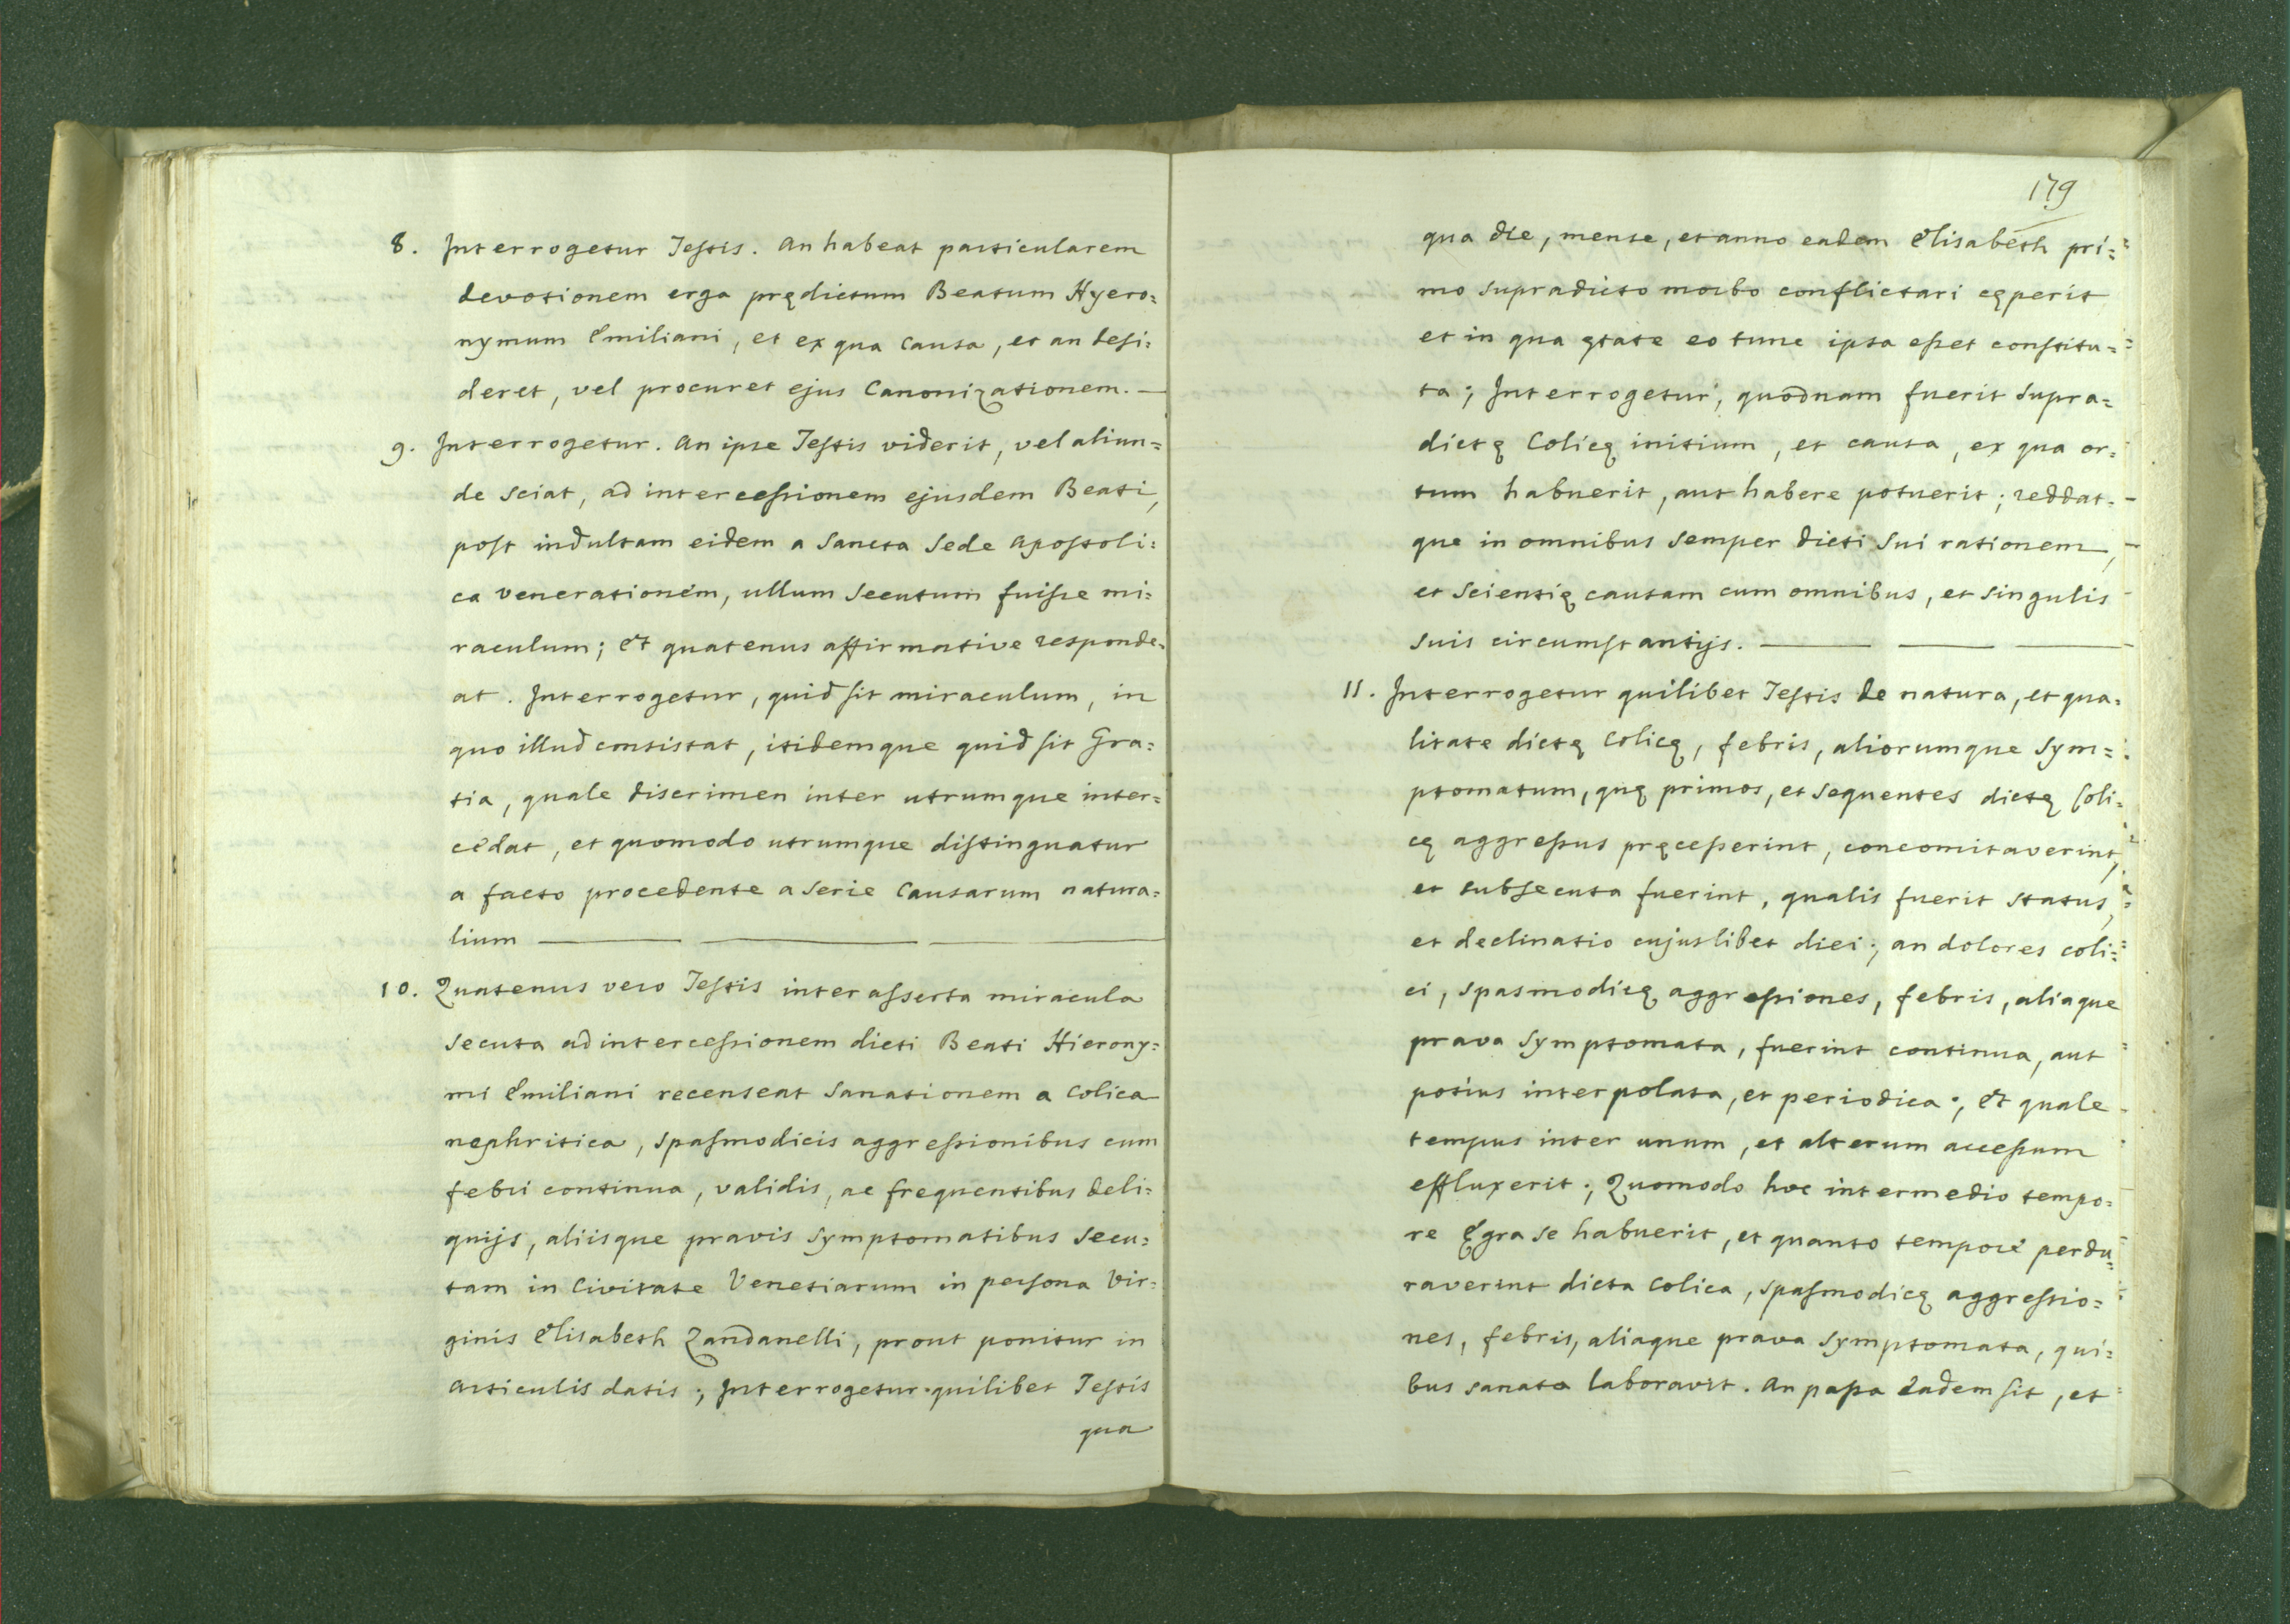 8. Interrogetur Testis. An habeat particularem
devotionem erga prędictum Beatum Hyero=
nymum Emiliani, et ex qua causa, et an desi=
deret, vel procuret ejus Canonizationem. —
9. Interrogetur. An ipse Testis viderit, vel aliun=
de sciat, ad intercessionem ejusdem Beati,
post indultam eidem a Sancta Sede Apostoli=
ca venerationem, ullum secutum fuisse mi=
raculum; et quatenus affirmative responde=
at. Interrogetur, quid sit miraculum, in
quo illud consistat, itidemque quid sit Gra=
tia, quale discrimen inter utrumque inter=
cedat, et quomodo utrumque distinguatur
a facto procedente a serie causarum natura=
lium — — —
10. Quatenus vero Testis inter asserta miracula
secuta ad intercessionem dicti Beati Hierony=
mi Emiliani recenseat sanationem a colica
nephritica, spasmodicis aggressionibus cum
febri continua, validis, ac frequentibus deli=
quijs, aliisque pravis symptomatibus secu=
tam in Civitate Venetiarum in persona Vir=
ginis Elisabeth Zandanelli, prout ponitur in
Articulis datis; Interrogetur quilibet Testis
qua
179
qua die, mense, et anno eadem Elisabeth pri=
mo supradicto morbo conflictari cęperit
et in qua ętate eo tunc ipsa esset constitu=
ta; Interrogetur, quodnam fuerit supra=
dictę Colicę initium, et causa, ex qua or=
tum habuerit, aut habere potuerit; reddat=
que in omnibus semper dicti sui rationem,
et scientię causam cum omnibus, et singulis
suis circumstantijs. — — —
11. Interrogetur quilibet Testis de natura, et qua=
litate dictę colicę, febris, aliorumque sym=
ptomatum, quę primos, et sequentes dictę Coli=
cę aggressus pręcesserint, concomitaverint,
et subsecuta fuerint, qualis fuerit status,
et declinatio cujuslibet diei; an dolores coli=
ci, spasmodicę aggressiones, febris, aliaque
prava symptomata, fuerint continua, aut
potius interpolata, et periodica; et quale
tempus inter unum, et alterum accessum
effluxerit; Quomodo hoc intermedio tempo=
re Ęgra se habuerit, et quanto tempore perdu=
raverint dicta colica, spasmodicę aggressio=
nes, febris, aliaque prava symptomata, qui=
bus sanata laboravit. An passa eadem sit, et